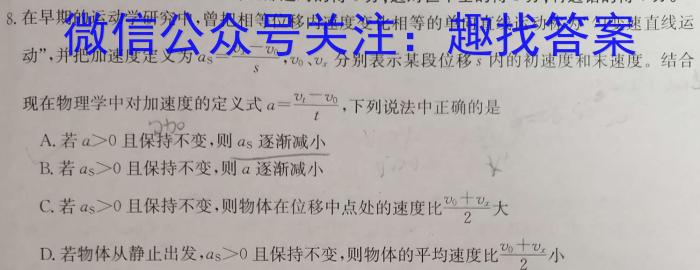 8.在早期的运动学研究中,曾把相等位移内速度变化相等的单向直线运动
直线运
微信公众号关注：趣找答案
动”,并把加速度定义为aₛ=(-v₀)/s,v₀、vₓ 分别表示某段位移 s 内的初速度和末速度。结合
现在物理学中对加速度的定义式 a=(vₜ-v₀)/t,下列说法中正确的是
A.若 a>0 且保持不变,则 aₛ 逐渐减小
B.若 aₛ>0 且保持不变,则 a 逐渐减小
C.若 aₛ>0 且保持不变,则物体在位移中点处的速度比(v₀+vₓ)/2大
D.若物体从静止出发,aₛ>0 且保持不变,则物体的平均速度比(v₀+vₓ)/2小